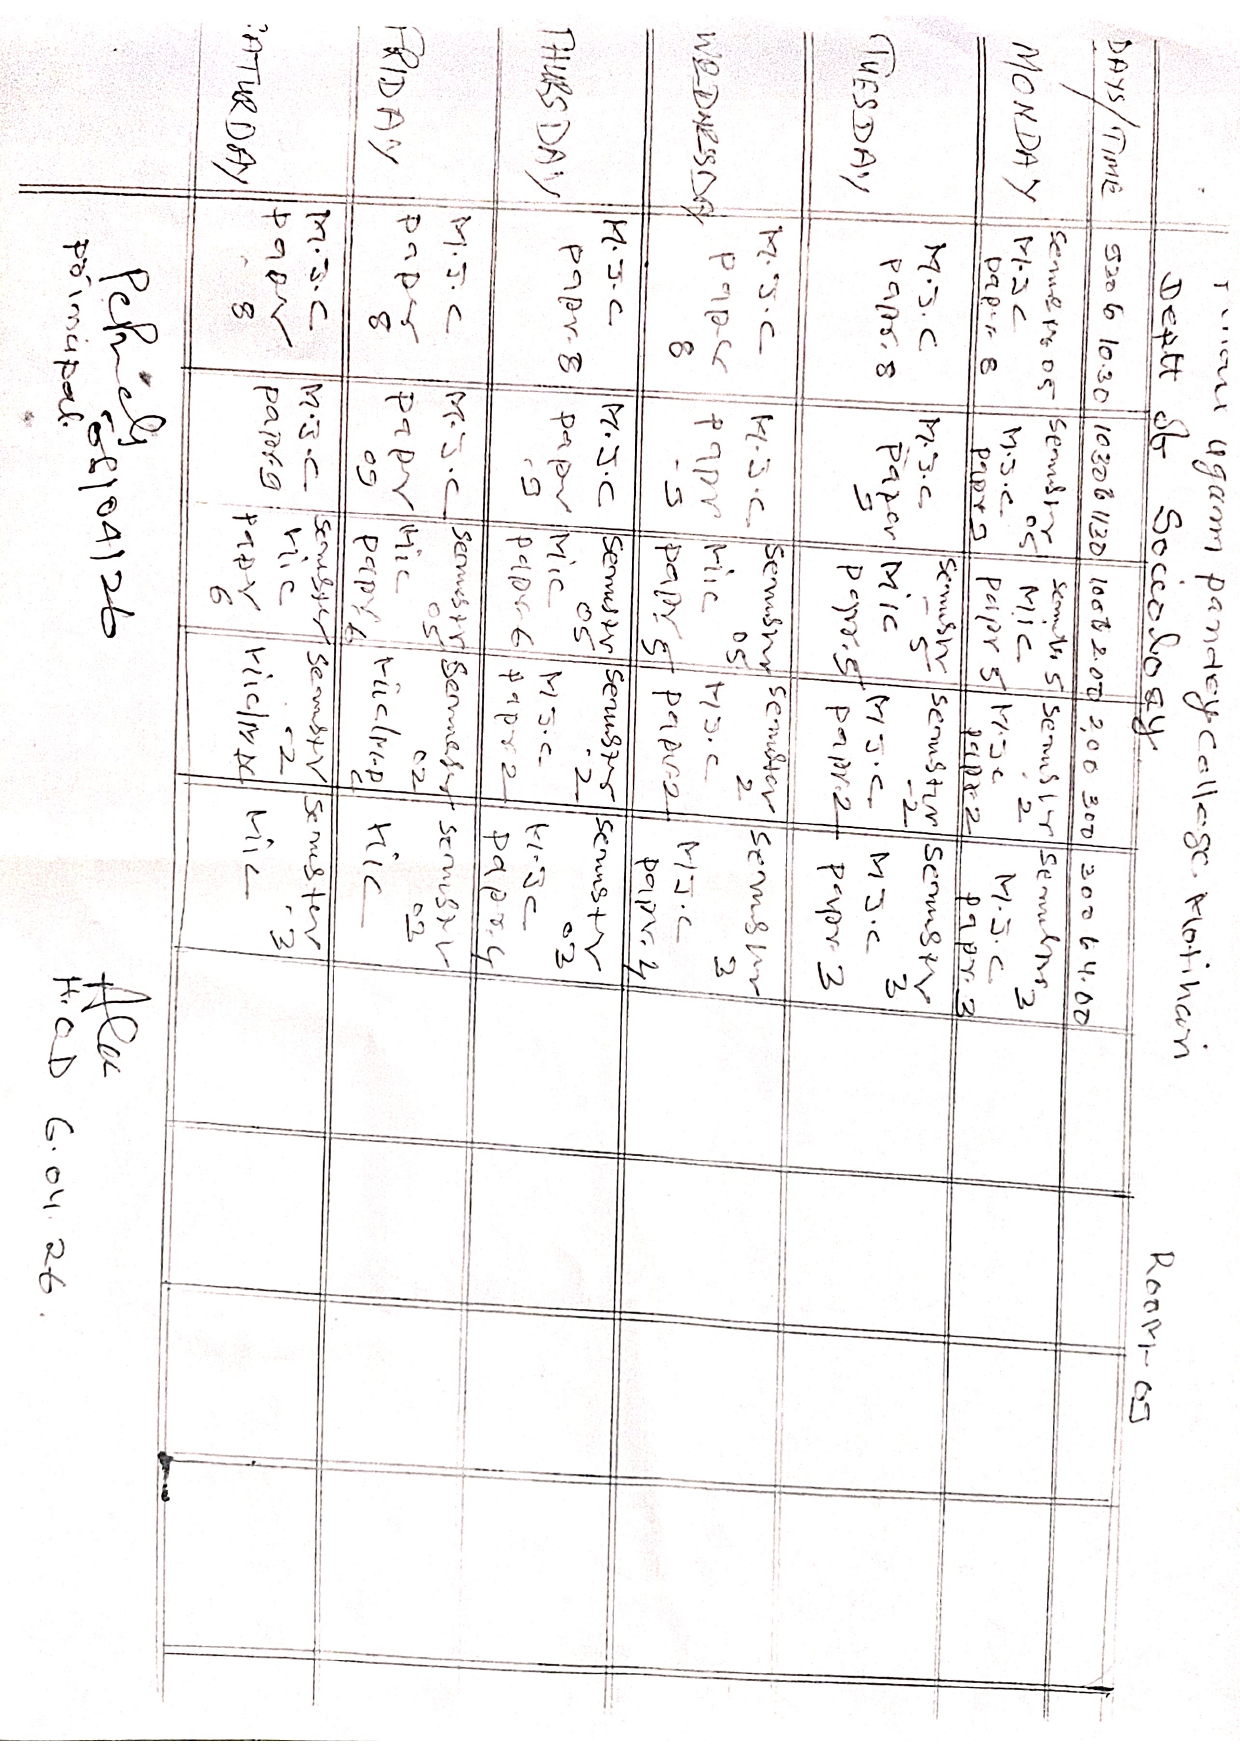 ugam pandey college Motihari
Deptt of Sociology
Room-09
DAYS/TIME 1030 to 1130 100 to 2.00 2,00 300 300 to 4.00
MONDAY
M.J.C
papr 8
Semestr 05
M.J.C
papr 9
Semstr 5
MIC
papr 5
Semestr 2
M.J.C
papr 2
Semestr 3
M.J.C
papr. 3
TUESDAY
M.J.C
papr. 8
M.J.C
paper
9
Semestr
- 5
MIC
papr. 5
Semestur
-2
M J.C
papr. 2
Semestr
3
M J.C
papr 3
WEDNESDAY
M.J.C
paper
8
M.J.C
papr
- 9
Semestur
05
MIC
papr 5
Semester
2
M J.C
papr. 2
Semestur
3
M J.C
papr. 4
THURSDAY
M.J.C
papr. 8
M.J.C
papr
- 9
Semestr
05
MIC
papr. 6
Semestr
- 2
M J.C.
papr 2
Semestr
03
M.J.C
papr. 4
FRIDAY
M.J.C
papr
8
M.J.C
papr
09
Semestr
05
MIC
papr 6
Semestr
02
Semestr
MIC
SATTURDAY
M.J.C
papr
8
M.J.C
papr. 9
Semestr
MIC
papr
6
Semestr
- 2
Semester
- 3
MIC
06/04/26
principal
H.O.D 6.04.26.